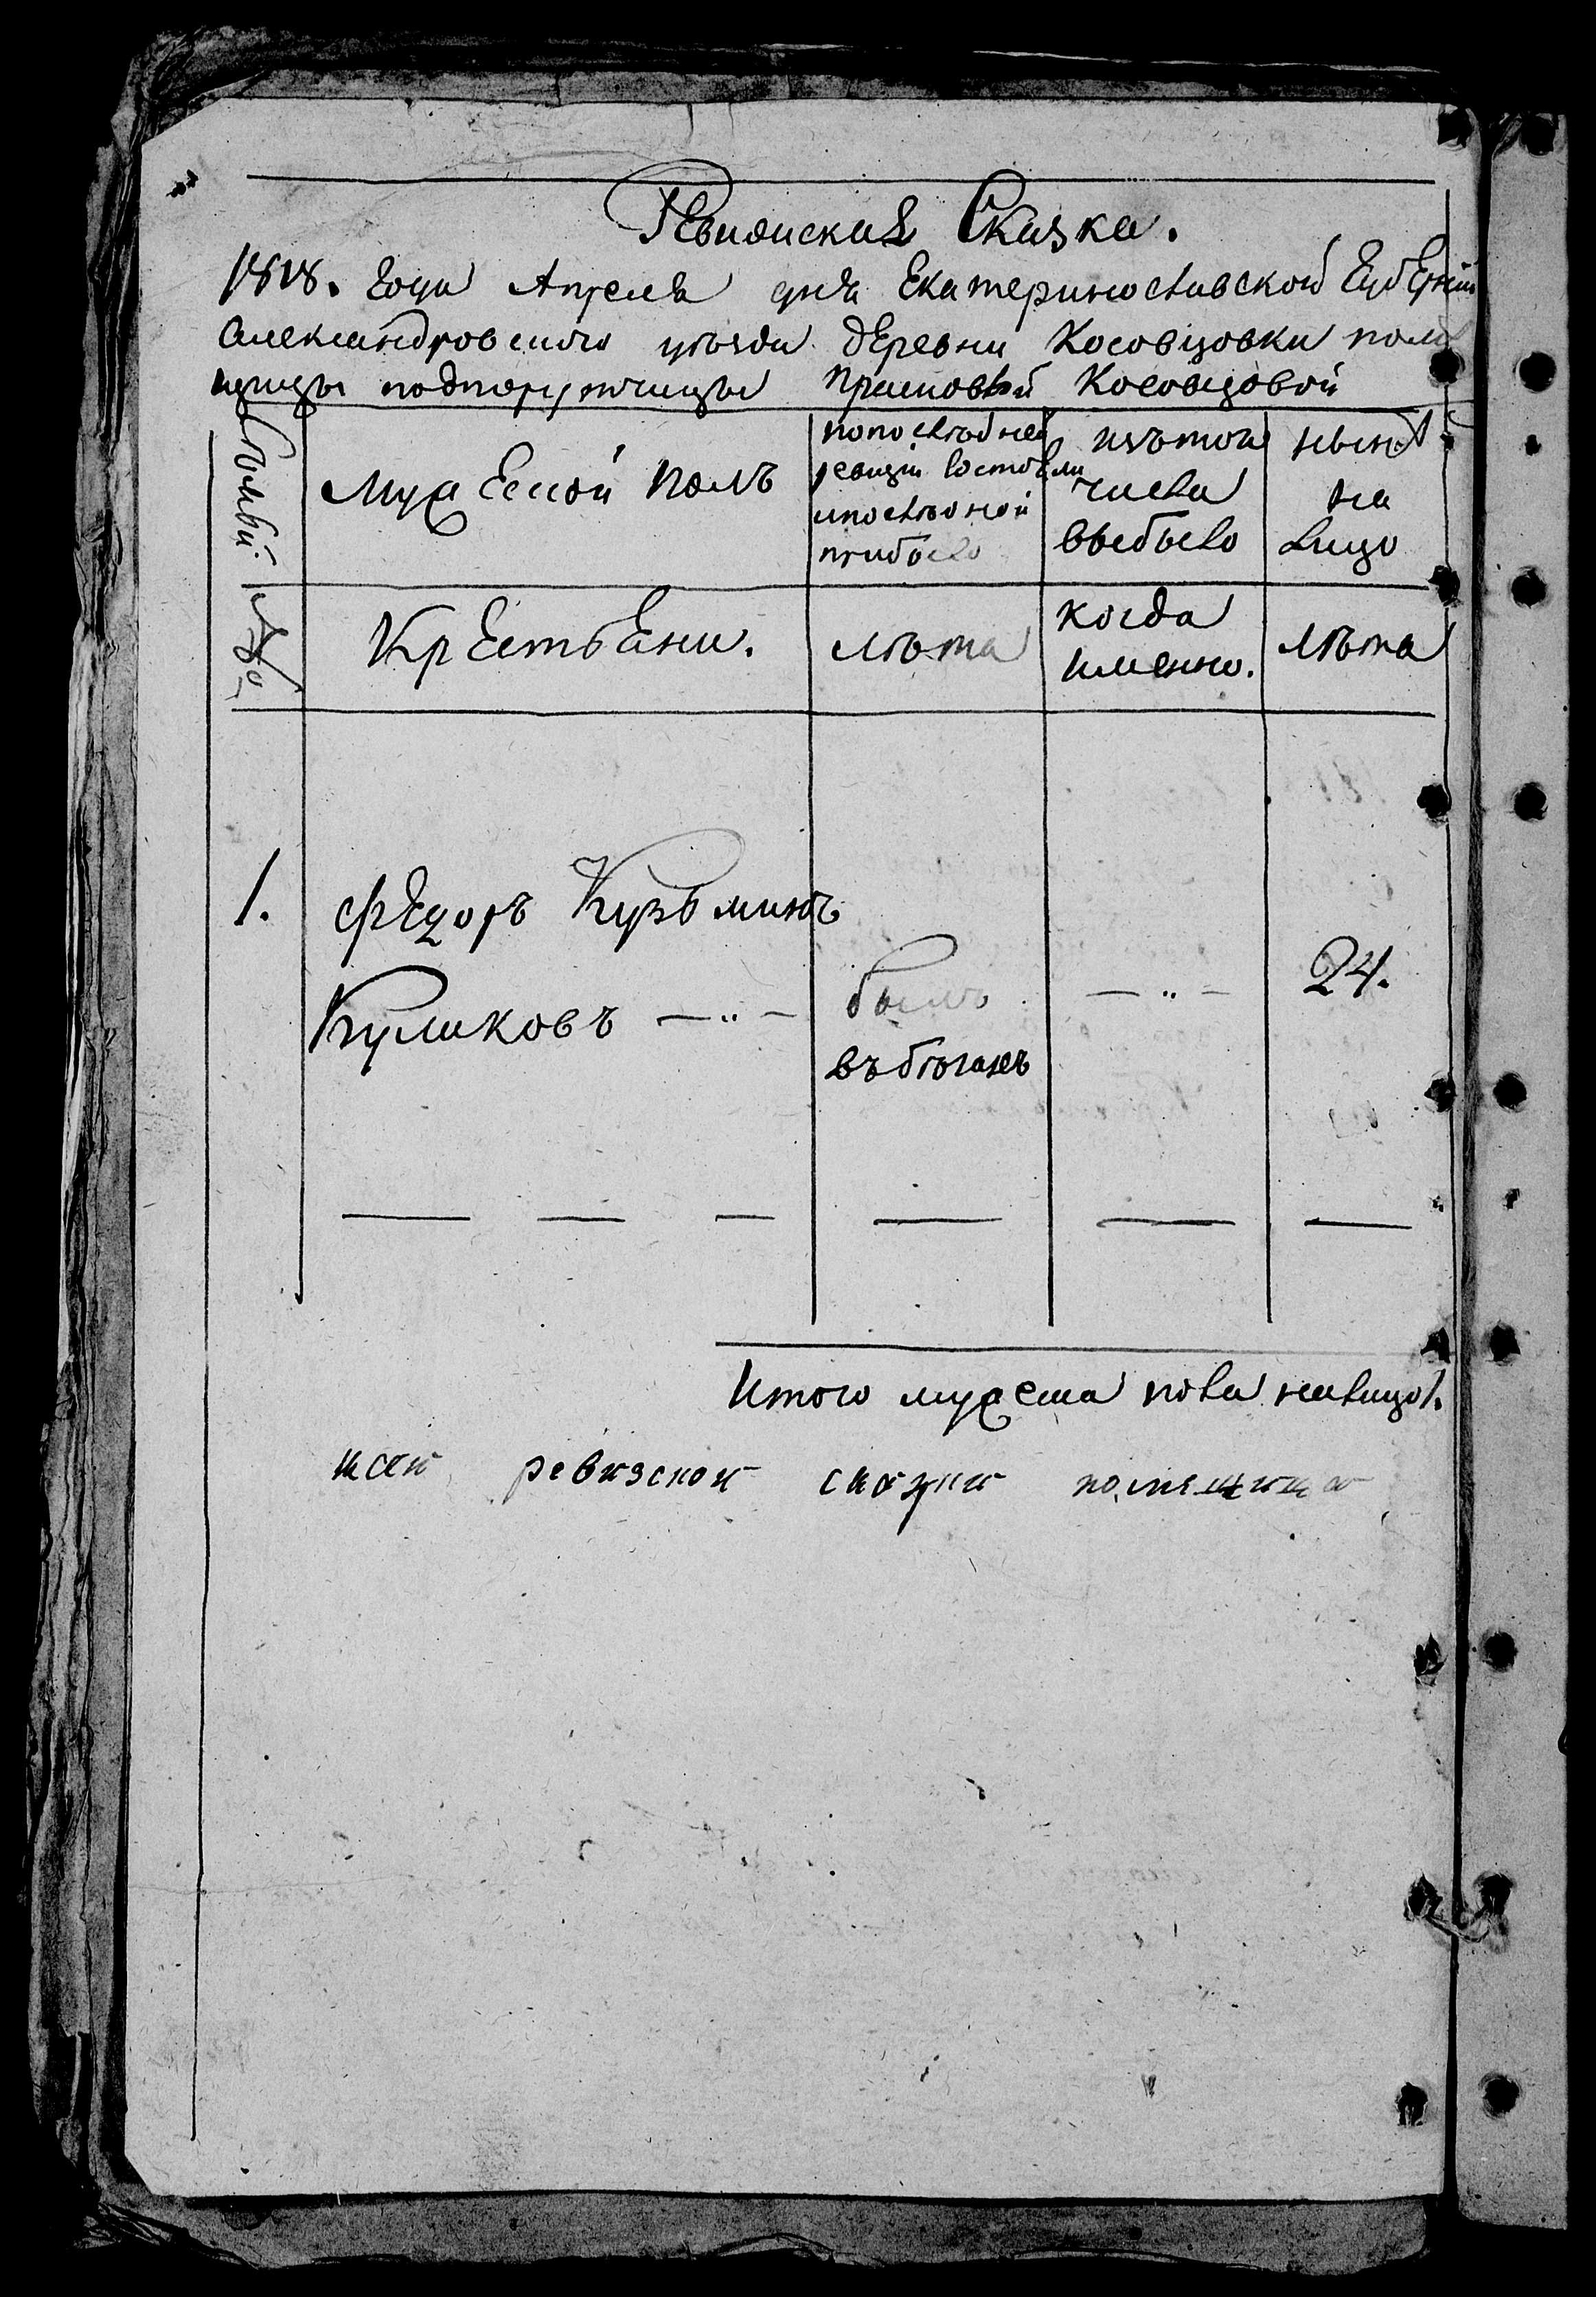 Ревизская Сказка.
1818. Года Апреля дня Екатеринославской Губерніи
Александровскаго уѣзда деревни Косовцовки поме
щицы подпоручицы Косовцовой
Семьи №
Мужеской полъ
попоследней ревизіи состояли ипоследней прибыло
изътого числа выбыло
ныне на лицо
Крестьяне.
лѣта
когда именно.
лѣта
1. Федоръ Кузьминъ
Куликовъ — " — былъ — " — 24.
въбѣгахъ
Итого мужеска пола налицо 1.
ревизской сказки помещица